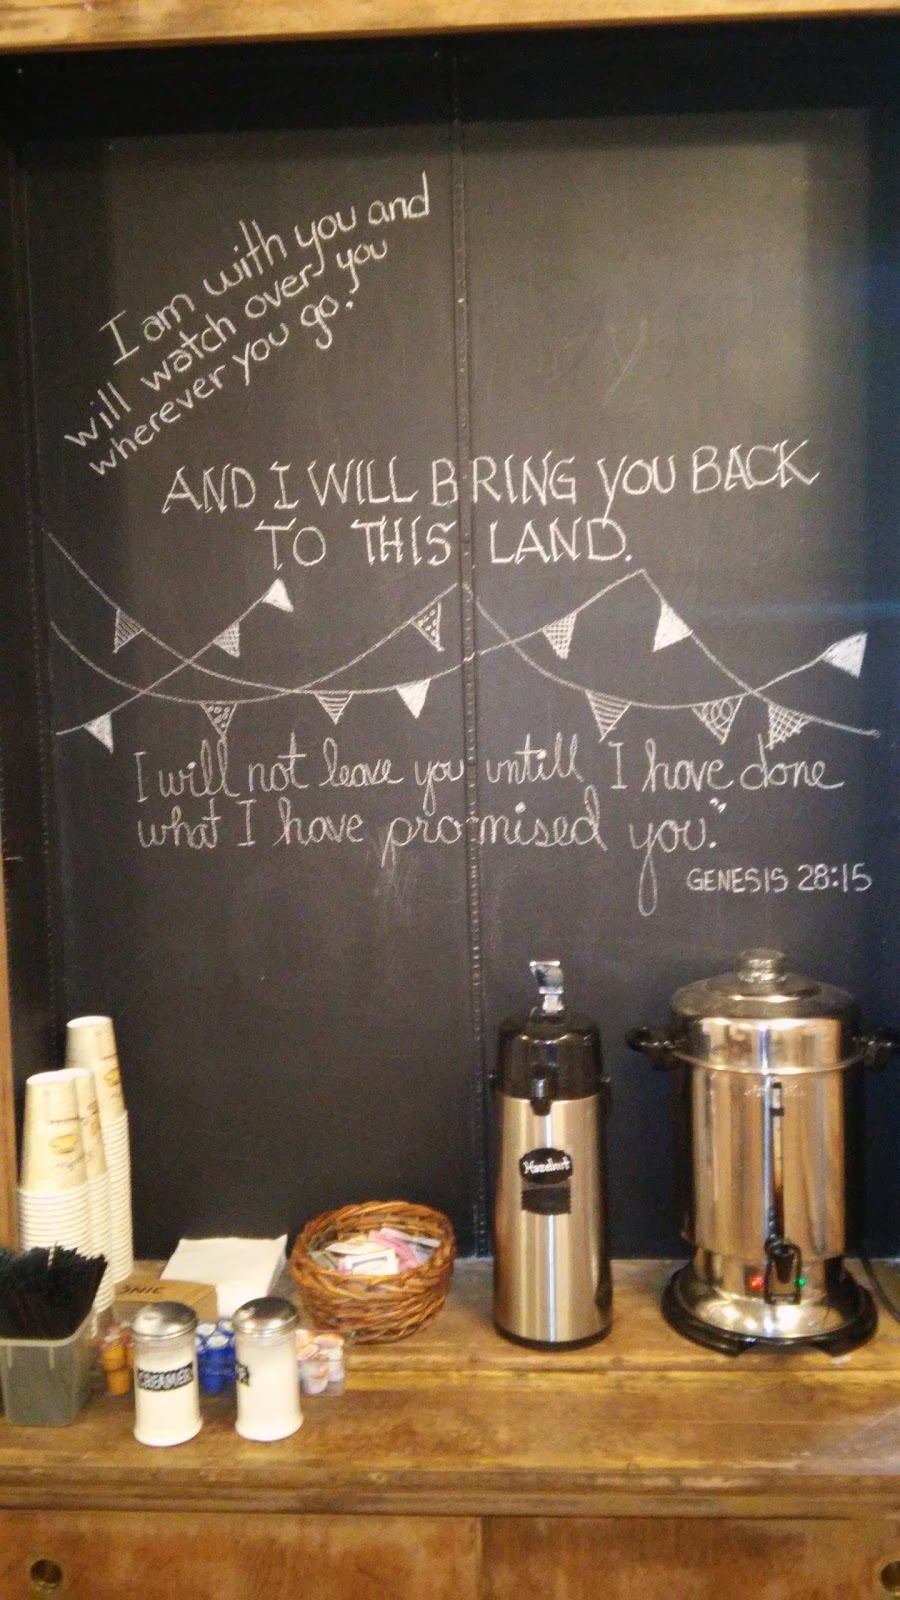 I am with you and
will watch over you
wherever you go."
AND I WILL BRING YOU BACK
TO THIS LAND.
I will not leave you untill I have done
what I have promised you."
GENESIS 28:15
Hazelnut
CREAMER